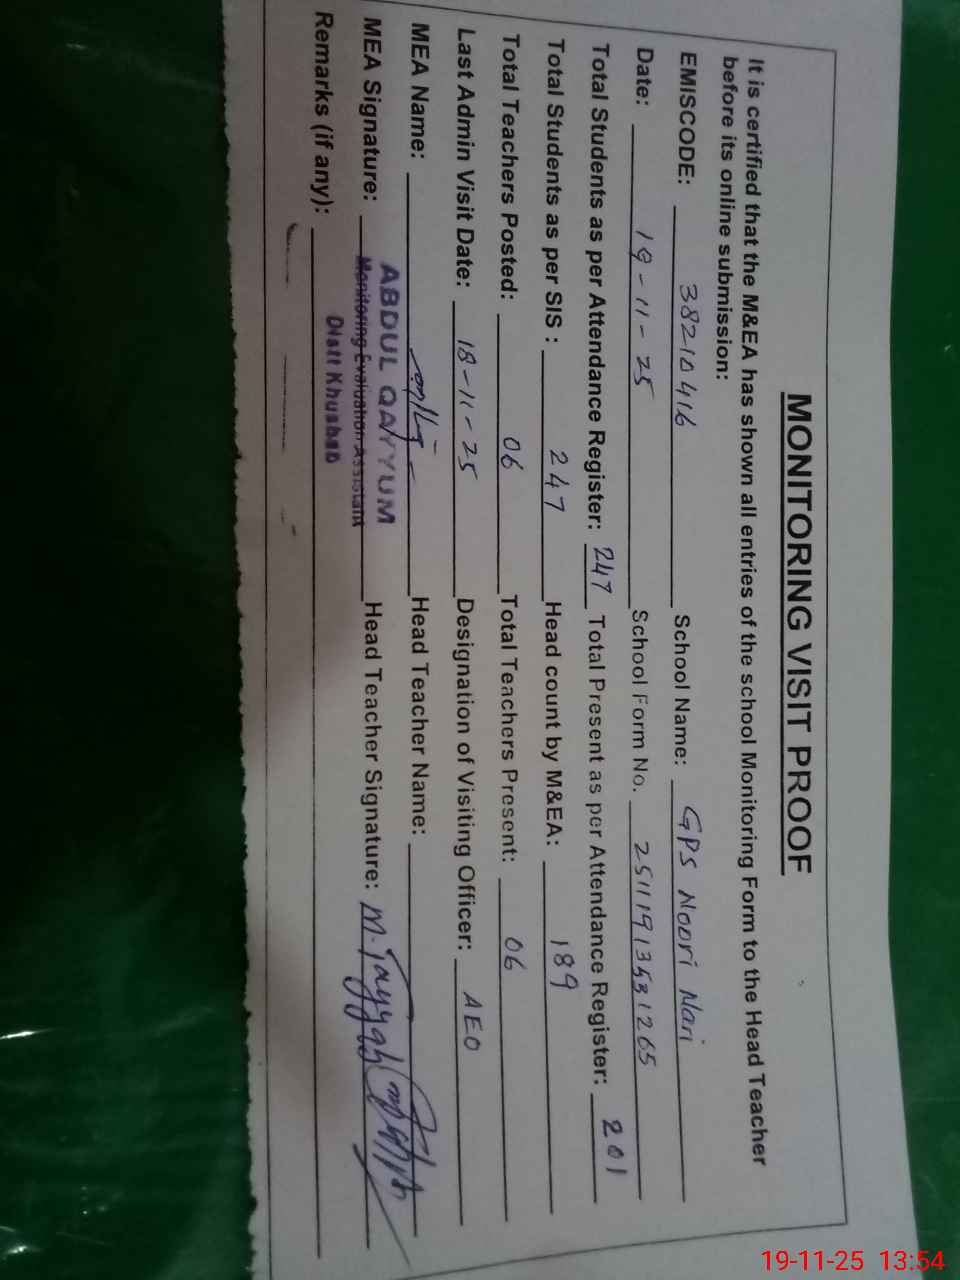 MONITORING VISIT PROOF
It is certified that the M&EA has shown all entries of the school Monitoring Form to the Head Teacher
before its online submission:
EMISCODE: 38210416 School Name: GPS Noori Nari
Date: 19-11-25 School Form No. 25111913531265
Total Students as per Attendance Register: 247 Total Present as per Attendance Register: 201
Total Students as per SIS : 247 Head count by M&EA: 189
Total Teachers Posted: 06 Total Teachers Present: 06
Last Admin Visit Date: 18-11-25 Designation of Visiting Officer: AEO
MEA Name: Head Teacher Name:
ABDUL QAYYUM
MEA Signature: Head Teacher Signature: M. Tayyab
Monitoring Evaluation Assistant
Distt Khushab
Remarks (if any):
19-11-25 13:54